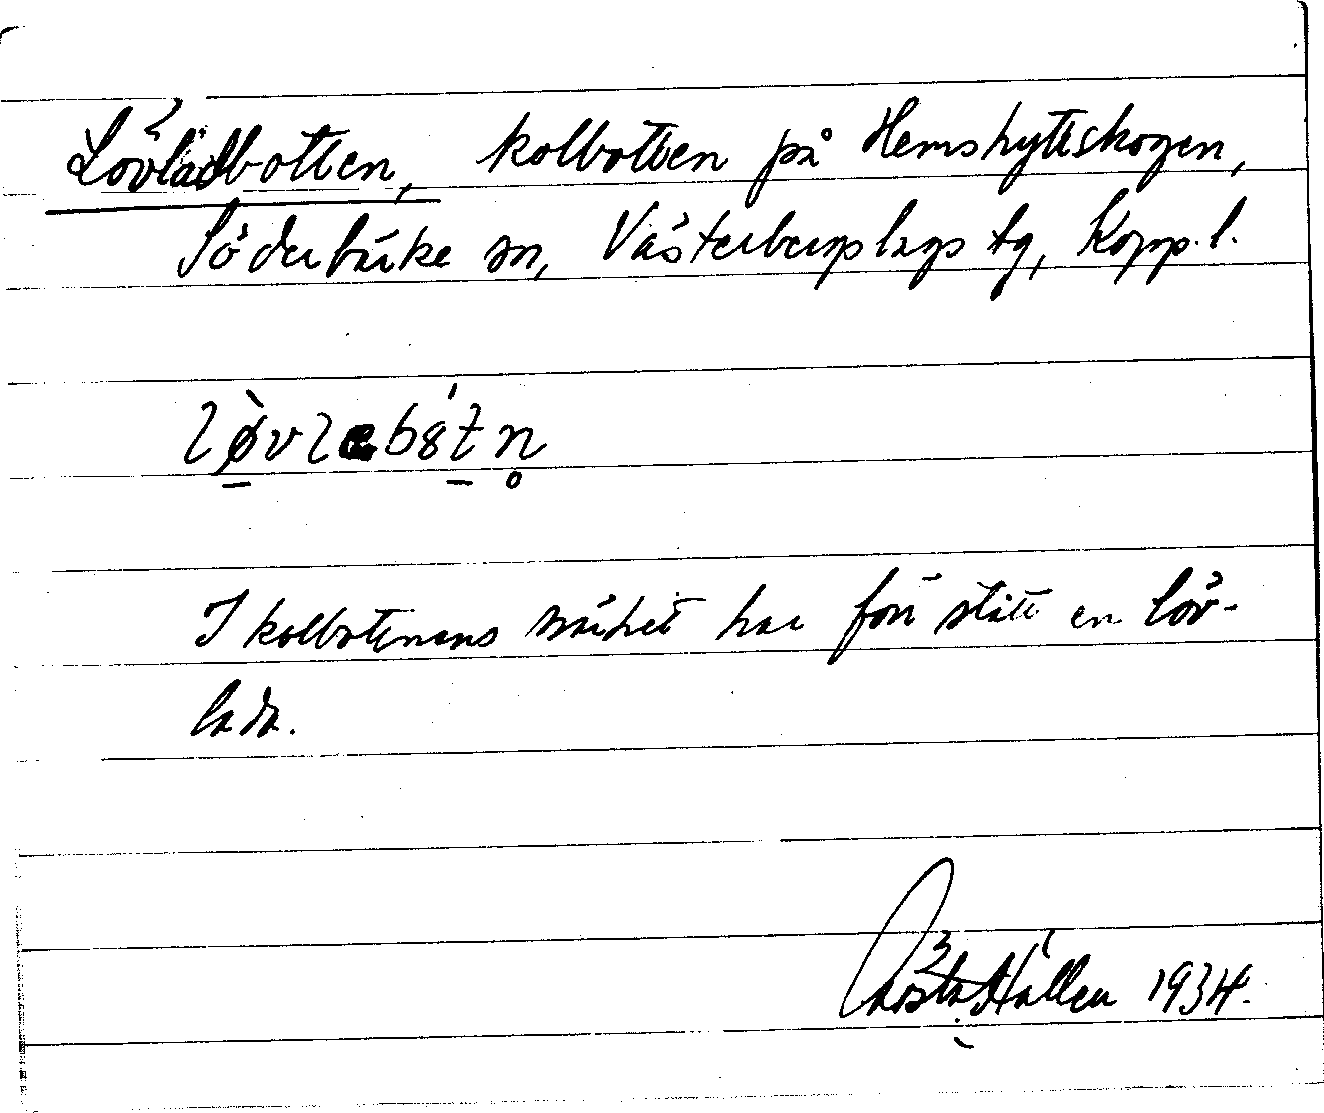 Lövlädbotten, kolbotten på Hemshytteskogen,
Söderbärke sn, Västerbergslags tg, Kopp. l.
løvlæbåtn̥
I kolbottnens närhet har förr stått en löv-
lada.
Gösta Hallen 1934.